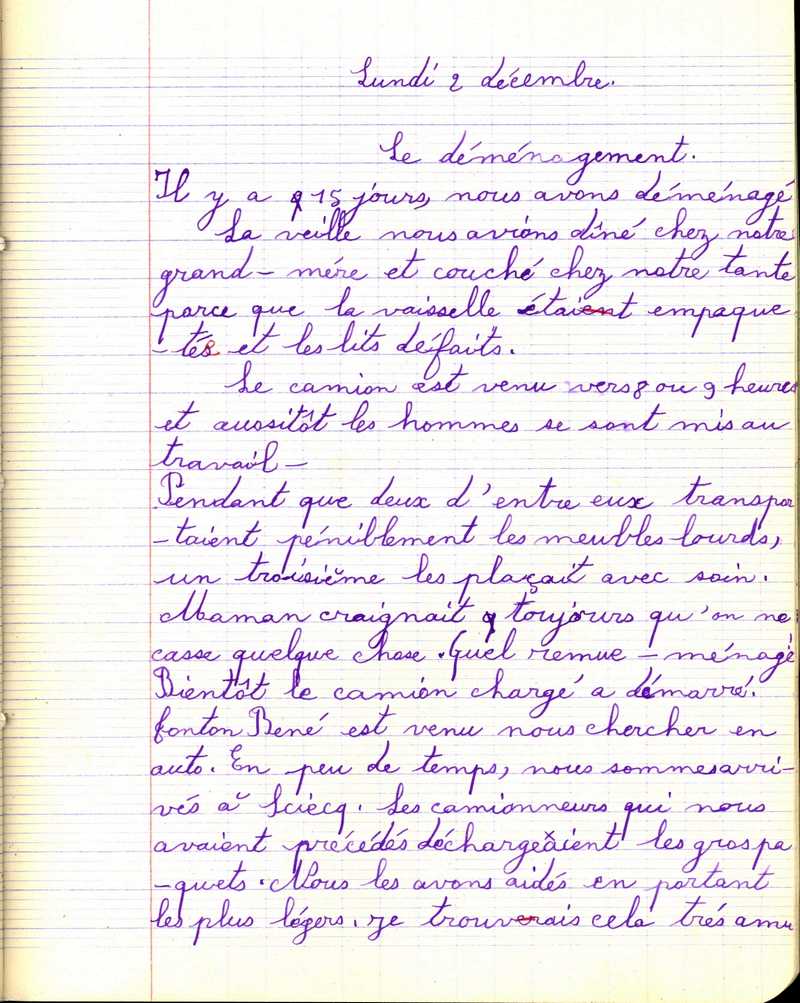 Lundi 2 décembre.
Le déménagement.
Il y a 15 jours, nous avons déménagé
La veille nous avions dîné chez notre
grand-mére et couché chez notre tante
parce que la vaisselle étaient empaque
-tés et les lits défaits.
Le camion est venu vers 8 ou 9 heures
et aussitôt les hommes se sont mis au
travail -
Pendant que deux d'entre eux transpor
-taient péniblement les meubles lourds,
un troisième les plaçait avec soin.
Maman craignait toujours qu'on ne
casse quelque chose. Quel remue-ménage
Bientôt le camion chargé a démarré.
tonton René est venu nous chercher en
auto. En peu de temps, nous sommes arri-
vés à Sciecq. Les camionneurs qui nous
avaient précédés déchargeaient les gros pa
-quets. Nous les avons aidés en portant
les plus légers. Je trouverais cela trés amu